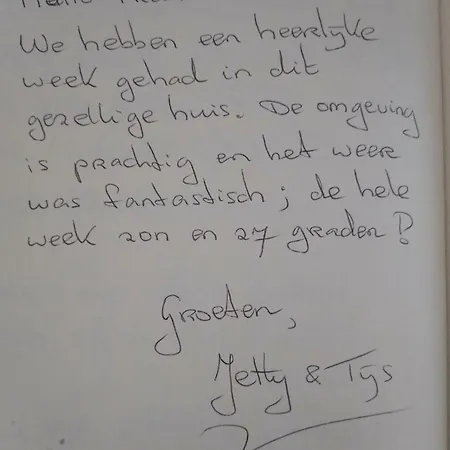 We hebben een heerlijke
week gehad in dit
gezellige huis. De omgeving
is prachtig en het weer
was fantastisch; de hele
week zon en 27 graden!
Groeten,
Jetty & Tijs